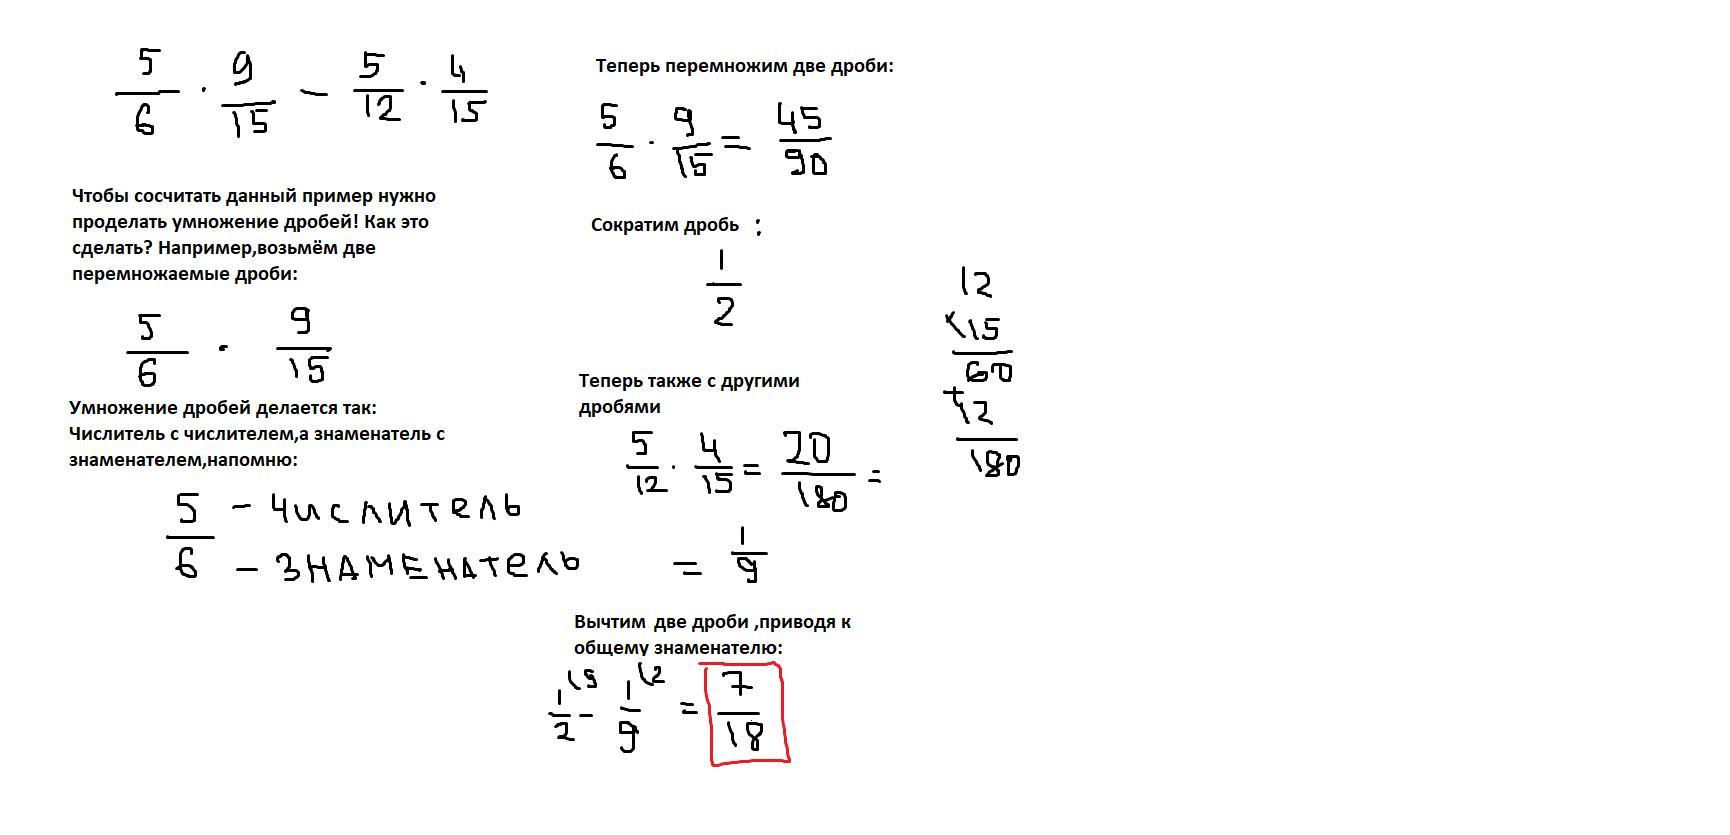 5/6 · 9/15 − 5/12 · 4/15
Чтобы сосчитать данный пример нужно
проделать умножение дробей! Как это
сделать? Например,возьмём две
перемножаемые дроби:
5/6 · 9/15
Умножение дробей делается так:
Числитель с числителем,а знаменатель с
знаменателем,напомню:
5 – Числитель
6 – ЗНАМЕНАТЕЛЬ
Теперь перемножим две дроби:
5/6 · 9/15 = 45/90
Сократим дробь :
1/2
Теперь также с другими
дробями
5/12 · 4/15 = 20/180 =
= 1/9
Вычтим две дроби ,приводя к
общему знаменателю:
1/2 \9 − 1/9 \2 = 7/18
12
×15
60
+12
180